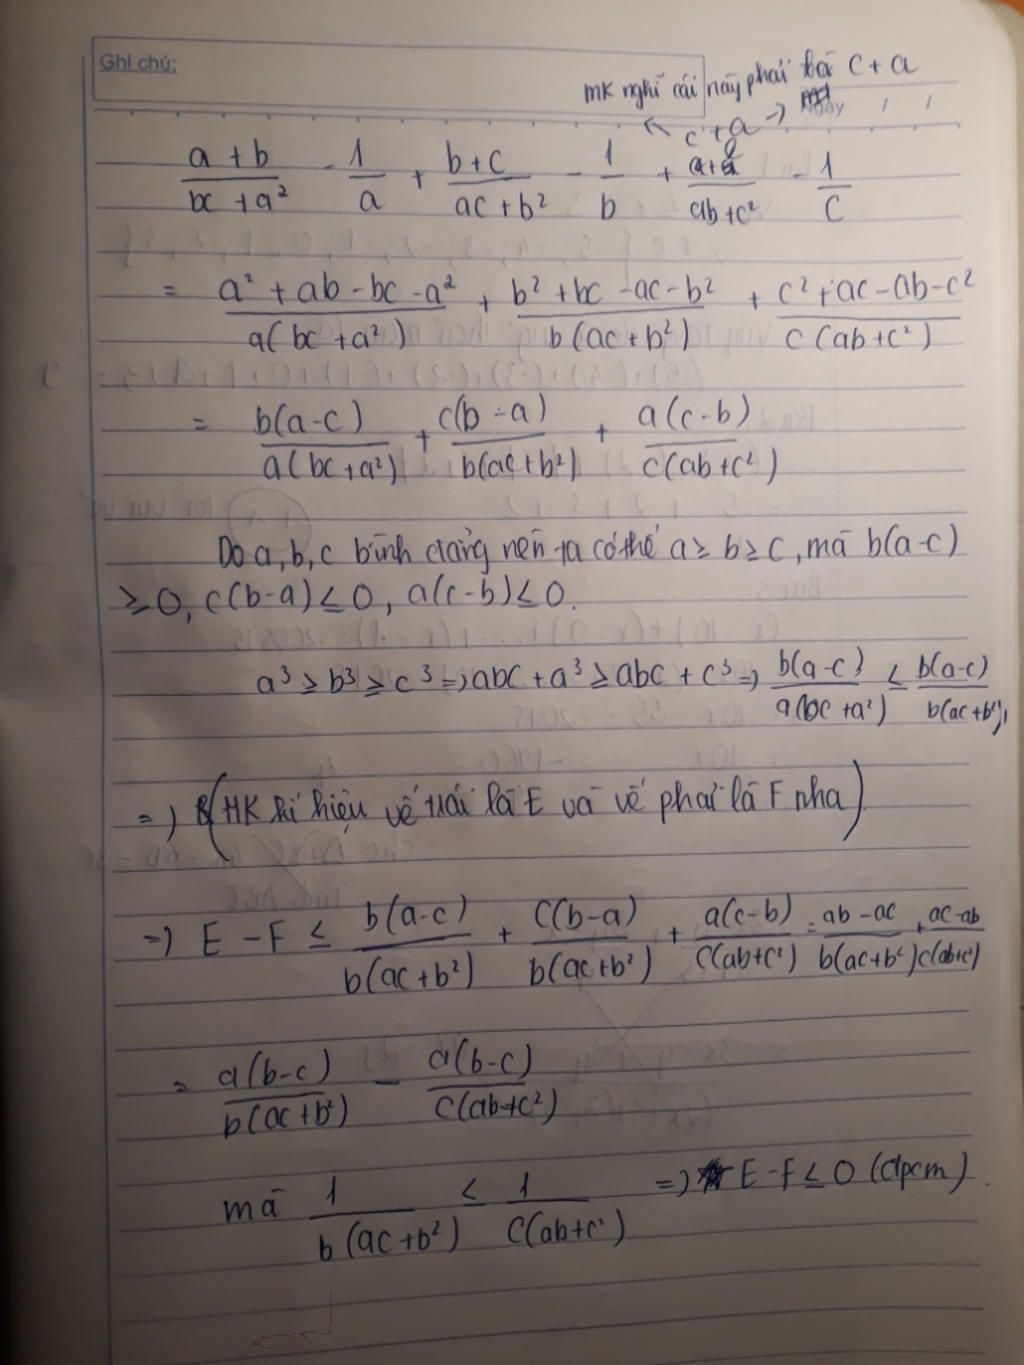 Ghi chú:
mk nghĩ cái này phải là c + a
Ngày / /
c + a
a + b / bc + a² - 1/a + b + c / ac + b² - 1/b + / ab + c² - 1/c
= a² + ab - bc - a² / a(bc + a²) + b² + bc - ac - b² / b(ac + b²) + c² + ac - ab - c² / c(ab + c²)
= b(a - c) / a(bc + a²) + c(b - a) / b(ac + b²) + a(c - b) / c(ab + c²)
Do a, b, c bình đẳng nên ta có thể a ≥ b ≥ c, mà b(a - c)
≥ 0, c(b - a) ≤ 0, a(c - b) ≤ 0.
a³ ≥ b³ ≥ c³ => abc + a³ ≥ abc + c³ => b(a - c) / a(bc + a²) ≤ b(a - c) / b(ac + b²)
=> (MK kí hiệu vế trái là E và vế phải là F nha)
=> E - F ≤ b(a - c) / b(ac + b²) + c(b - a) / b(ac + b²) + a(c - b) / c(ab + c²) = ab - ac / b(ac + b²) + ac - ab / c(ab + c²)
= a(b - c) / b(ac + b²) - a(b - c) / c(ab + c²)
mà 1 / b(ac + b²) ≤ 1 / c(ab + c²) => E - F ≤ 0 (đpcm).